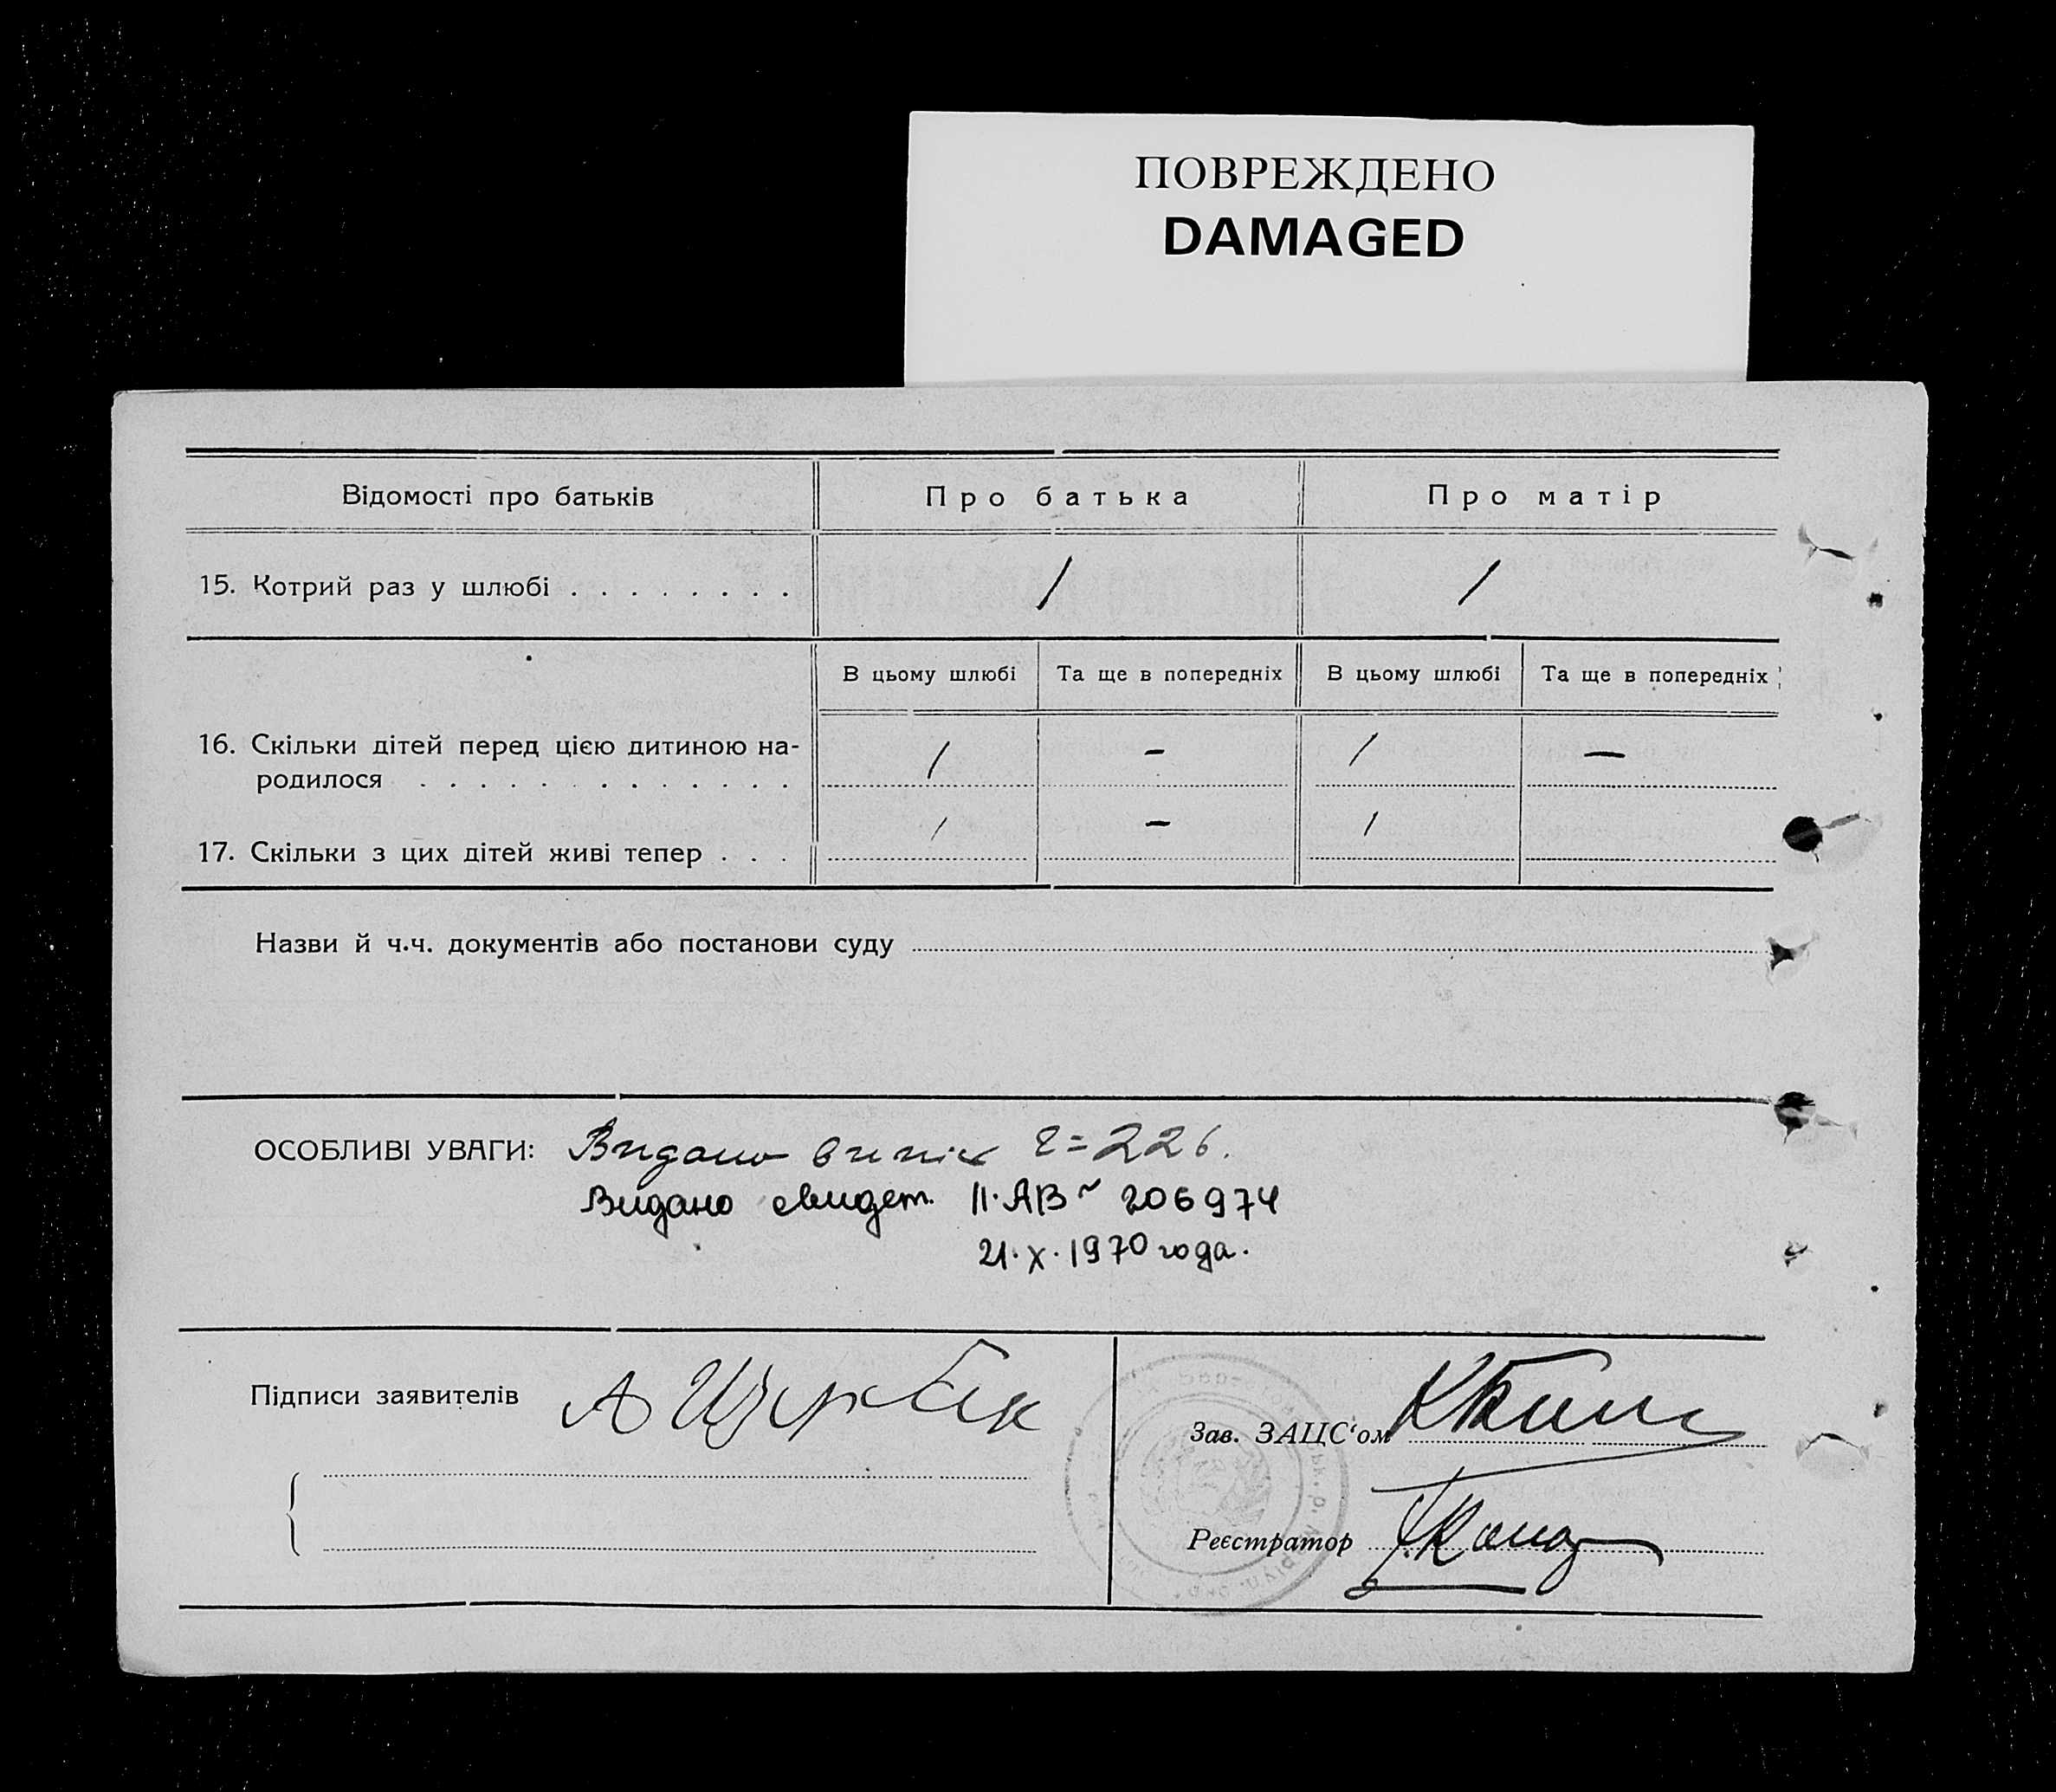 ПОВРЕЖДЕНО
DAMAGED
Відомості про батьків
Про батька
Про матір
15. Котрий раз у шлюбі . . . . . . . . / /
В цьому шлюбі Та ще в попередніх В цьому шлюбі Та ще в попередніх
16. Скільки дітей перед цією дитиною на-
родилося . . . . . . . . . . . . . / – / —
17. Скільки з цих дітей живі тепер . . . / – /
Назви й ч.ч. документів або постанови суду
ОСОБЛИВІ УВАГИ: Видано випис ч=226.
Видано свидет. II·АВ~ 206974
21·X·1970 года.
Підписи заявителів
Зав. ЗАЦС‘ом
Реєстратор